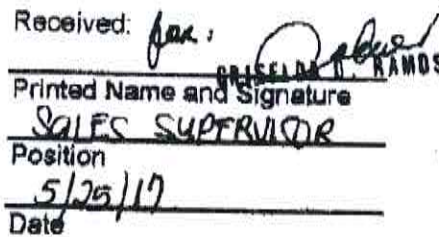 Received: for:
GRISELDA D. RAMOS
Printed Name and Signature
SALES SUPERVISOR
Position
5/25/17
Date